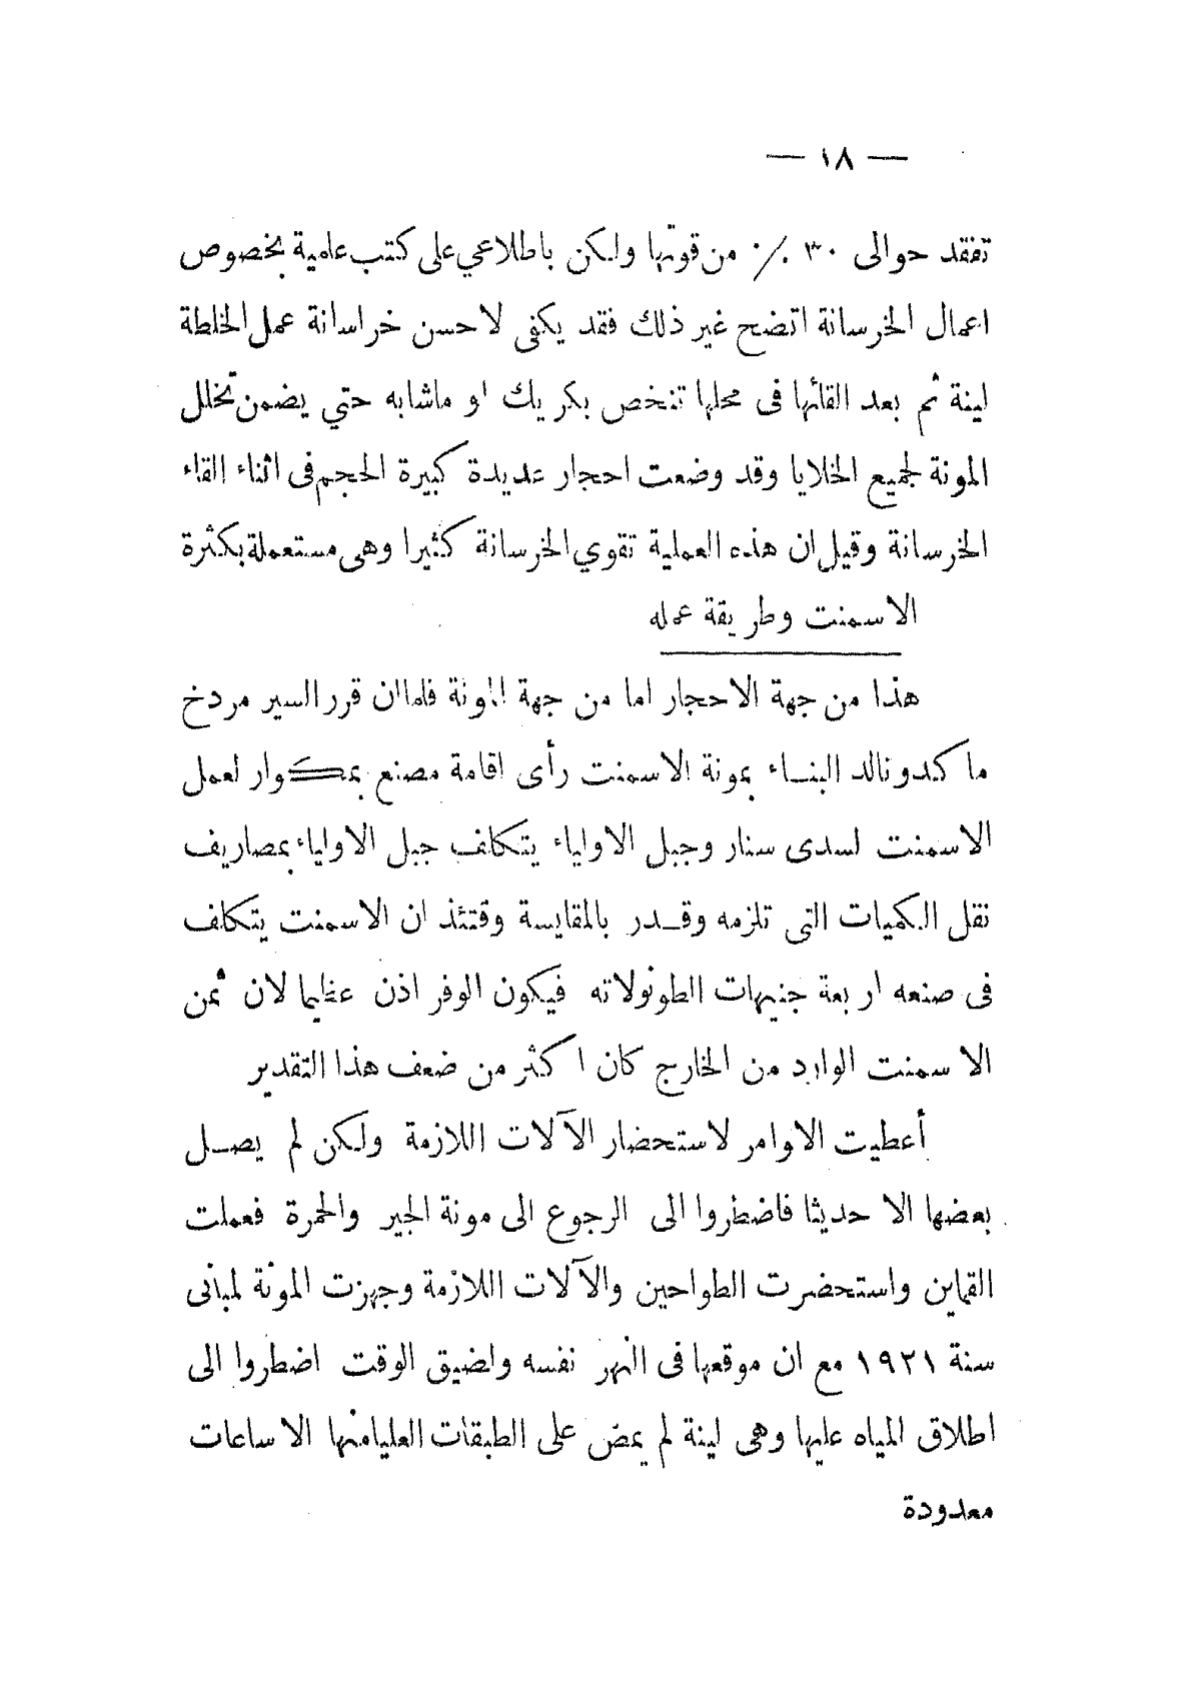 — ١٨ —
تفقد حوالى ٣٠ ٪ من قوتها ولكن باطلاعي على كتب علمية بخصوص
اعمال الخرسانة اتضح غير ذلك فقد يكفى لاحسن خراسانة عمل الخلطة
لينة ثم بعد القائها فى محلها تنخص بكريك او ماشابه حتي يضمن تخلل
المونة لجميع الخلايا وقد وضعت احجار عديدة كبيرة الحجم فى اثناء القاء
الخرسانة وقيل ان هذه العملية تقوي الخرسانة كثيرا وهى مستعملة بكثرة
الاسمنت وطريقة عمله
هذا من جهة الاحجار اما من جهة المونة فلما ان قرر السير مردخ
ماكدونالد البناء بمونة الاسمنت رأى اقامة مصنع بمكوار لعمل
الاسمنت لسدى سنار وجبل الاولياء يتكلف جبل الاولياء بمصاريف
نقل الكميات التى تلزمه وقدر بالمقايسة وقتئذ ان الاسمنت يتكلف
فى صنعه اربعة جنيهات الطونولاته فيكون الوفر اذن عظيما لان ثمن
الاسمنت الوارد من الخارج كان اكثر من ضعف هذا التقدير
أعطيت الاوامر لاستحضار الآلات اللازمة ولكن لم يصل
بعضها الا حديثا فاضطروا الى الرجوع الى مونة الجير والحمرة فعملت
القماين واستحضرت الطواحين والآلات اللازمة وجهزت المونة لمبانى
سنة ١٩٢١ مع ان موقعها فى النهر نفسه ولضيق الوقت اضطروا الى
اطلاق المياه عليها وهى لينة لم يمض على الطبقات العليا منها الا ساعات
معدودة